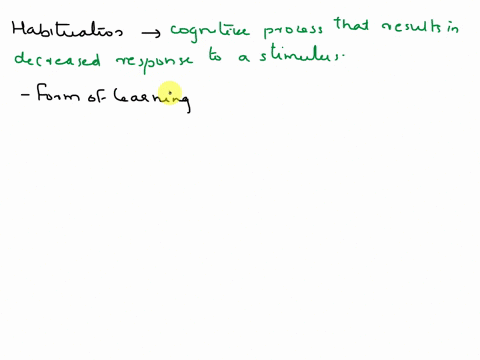 Habituation → cognitive process that results in
decreased response to a stimulus.
- Form of learning